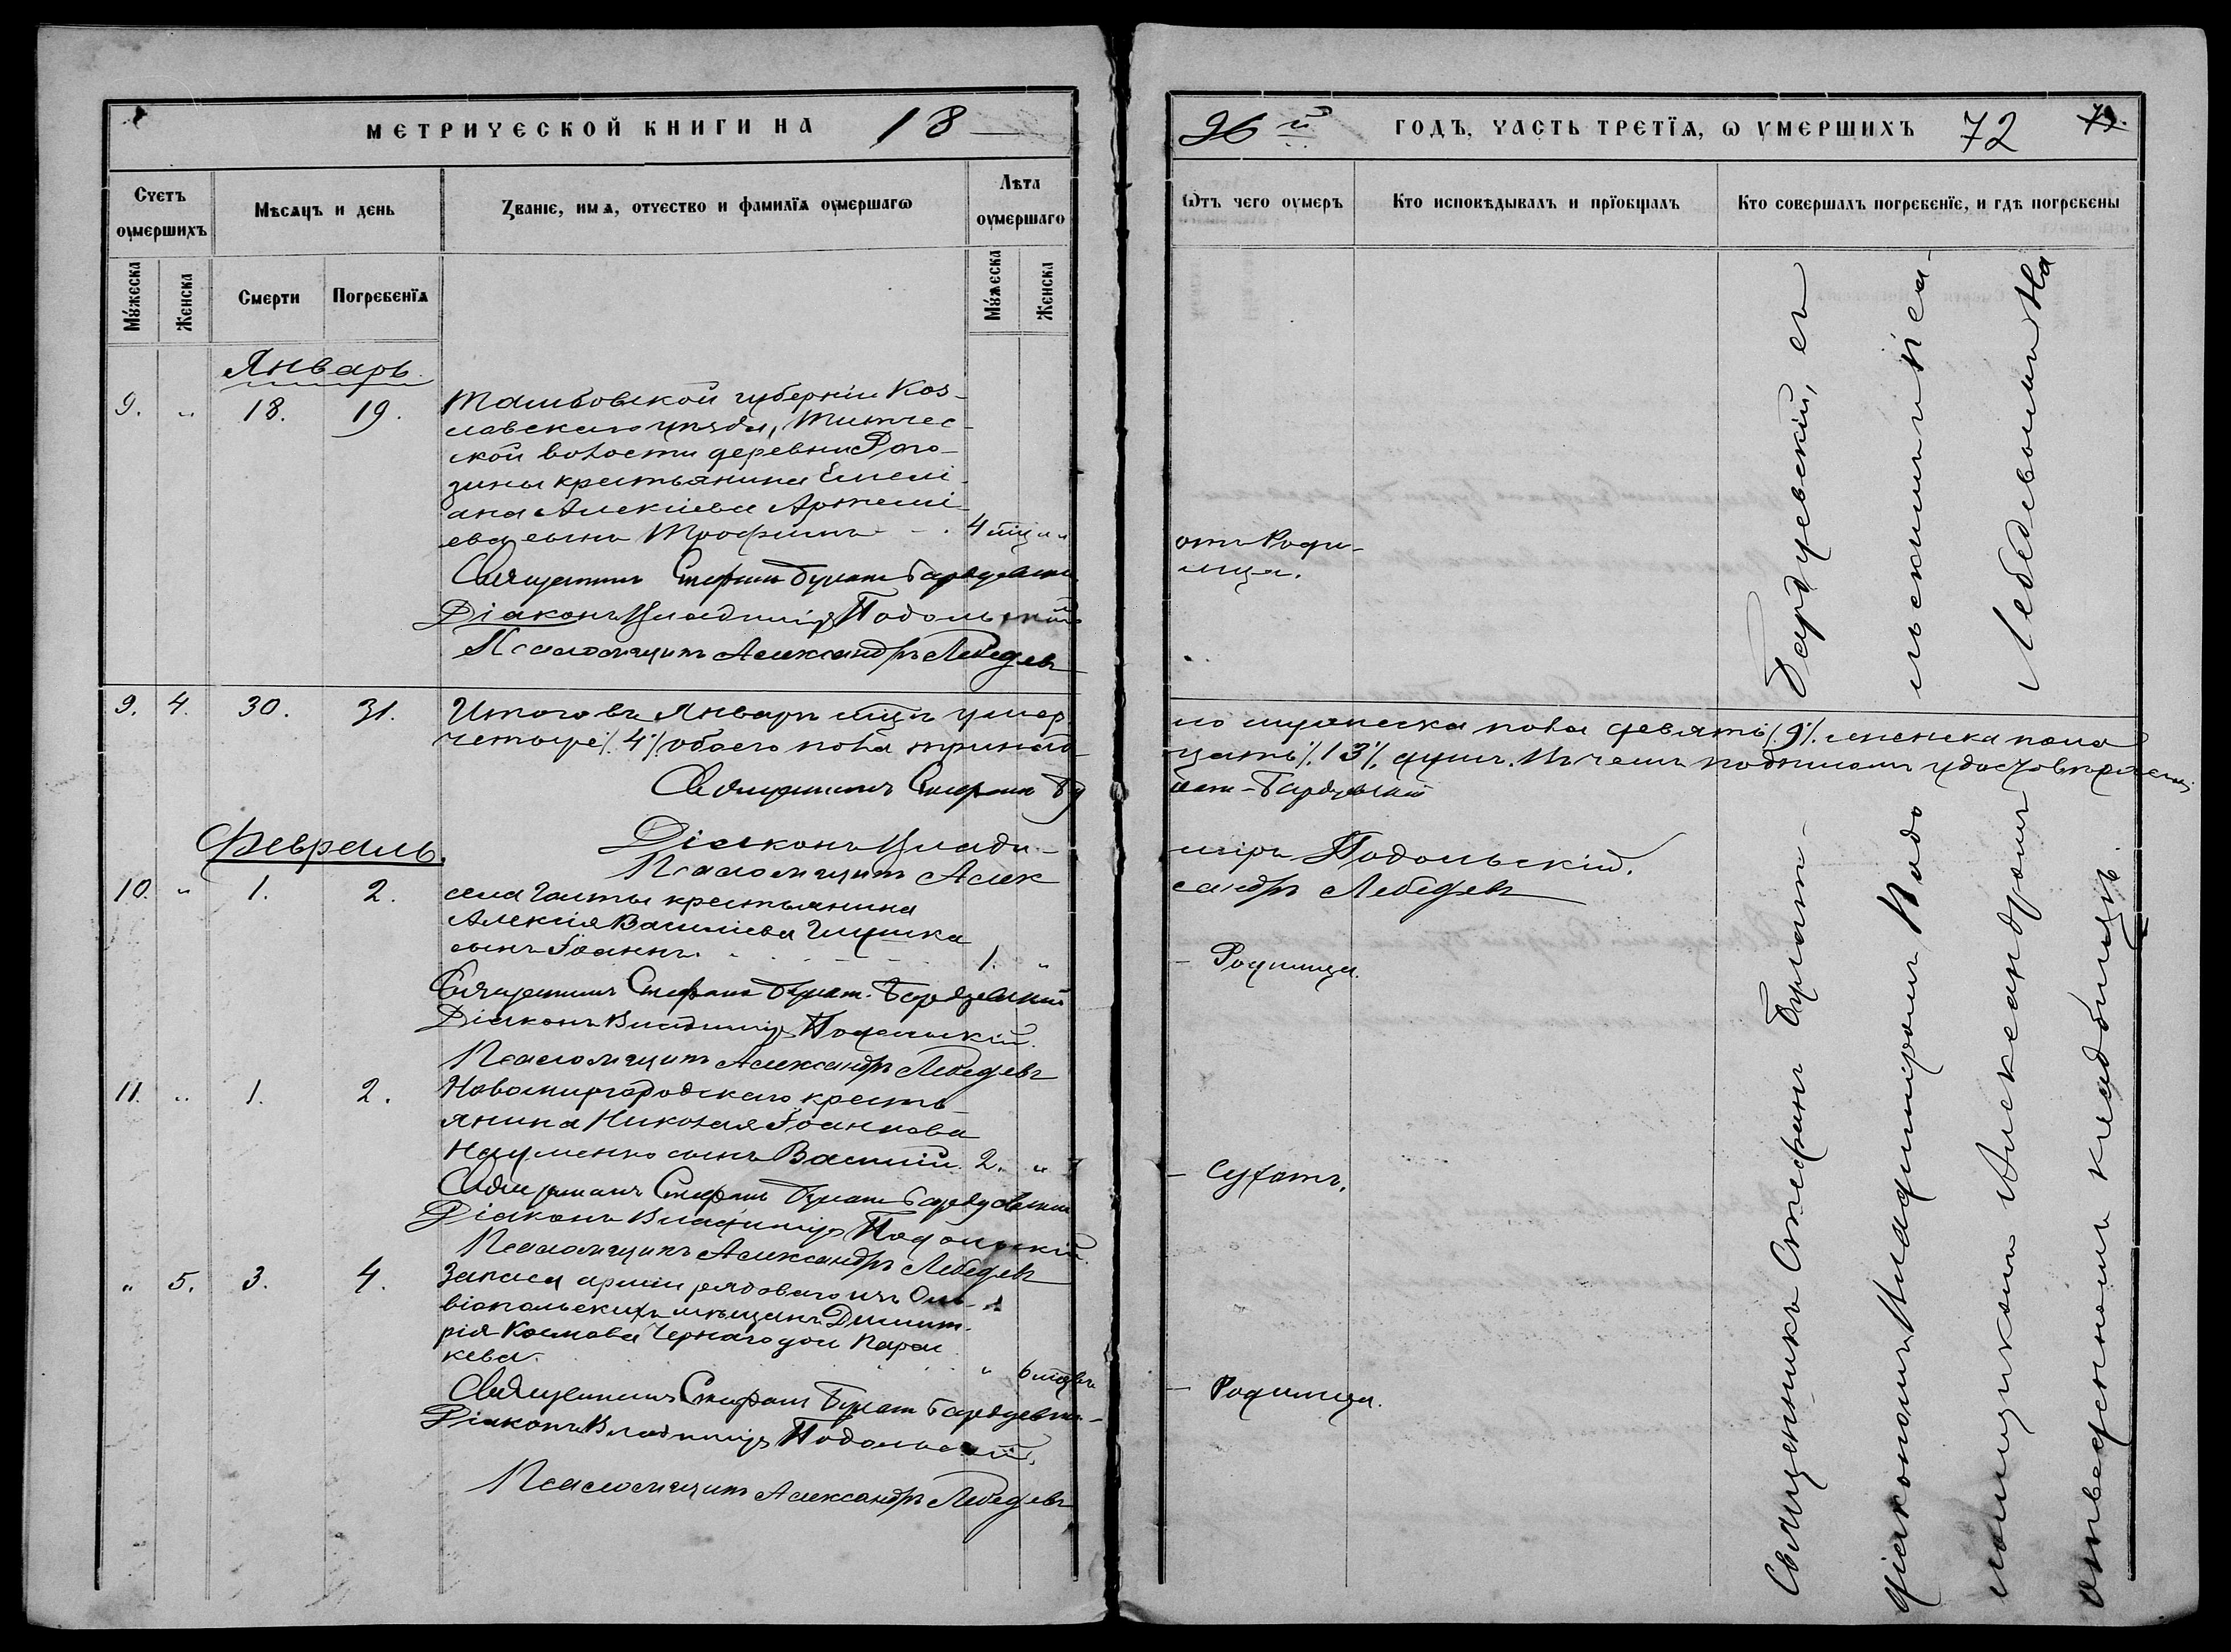 МЕТРИЧЕСКОЙ КНИГИ НА 18
96й ГОДЪ, ЧАСТЬ ТРЕТІѦ, Ѡ УМЕРШИХЪ 72
Счетъ оумершихъ
Мѣсѧцъ и день
Званіе, имѧ, отчество и фамиліѧ оумершагѡ
Лѣта оумершаго
Ѿтъ чего оумеръ
Кто исповѣдывалъ и пріобщалъ
Кто совершалъ погребеніе, и гдѣ погребены
Мужеска
Женска
Смерти
Погребеніѧ
Мужеска
Женска
Январь.
9. " 18. 19. Тамбовской губерніи Коз-
ловскаго уѣзда,
ской волости деревни Рого-
зины крестьянина Емелі-
ана Алексіева Артемі-
ева сынъ Трофимъ 4 мц. "
отъ Роди-
мца.
Священникъ Стефанъ Булат-Бардуевскій
Діаконъ Владиміръ Подольскій
Псаломщикъ Александръ Лебедевъ
9. 4. 30. 31. Итого въ Январѣ мцѣ умер-
ло мужеска пола девять /9/. женска пола
четыре /4/ обоего пола тринад-
цать /13/. душъ. Въ чемъ подписомъ удостовѣряемъ
Священникъ Стефанъ Бу
лат-Бардуевскій
Діаконъ Влади-
міръ Подольскій.
Псаломщикъ Алек
сандръ Лебедевъ
Февраль.
10. " 1. 2. села крестьянина
Алексія Василіева
сынъ Іоаннъ. 1. "
- Родимца.
Священникъ Стефанъ Булат-Бардуевскій
Діаконъ Владиміръ Подольскій.
Псаломщикъ Александръ Лебедевъ
11. " 1. 2. Новомиргородскаго кресть-
янина Николая Іоаннова
Науменко сынъ Василій. 2. "
- Сухотъ.
Священникъ Стефанъ Булат-Бардуевскій
Діаконъ Владиміръ Подольскій.
Псаломщикъ Александръ Лебедевъ
" 5. 3. 4. Запаса арміи рядоваго изъ Оль-
віопольскихъ мѣщанъ Димит-
рія Космова Чернаго дочь Парас-
кева. " 6 мцевъ
- Родимца.
Священникъ Стефанъ Булат-Бардуевскій
Діаконъ Владиміръ Подольскій.
Псаломщикъ Александръ Лебедевъ
Священникъ Стефанъ Булат-Бардуевскій, съ
діакономъ Владиміромъ Подольскимъ и Пса-
ломщикомъ Александромъ Лебедевымъ На
отведенномъ кладбищѣ.